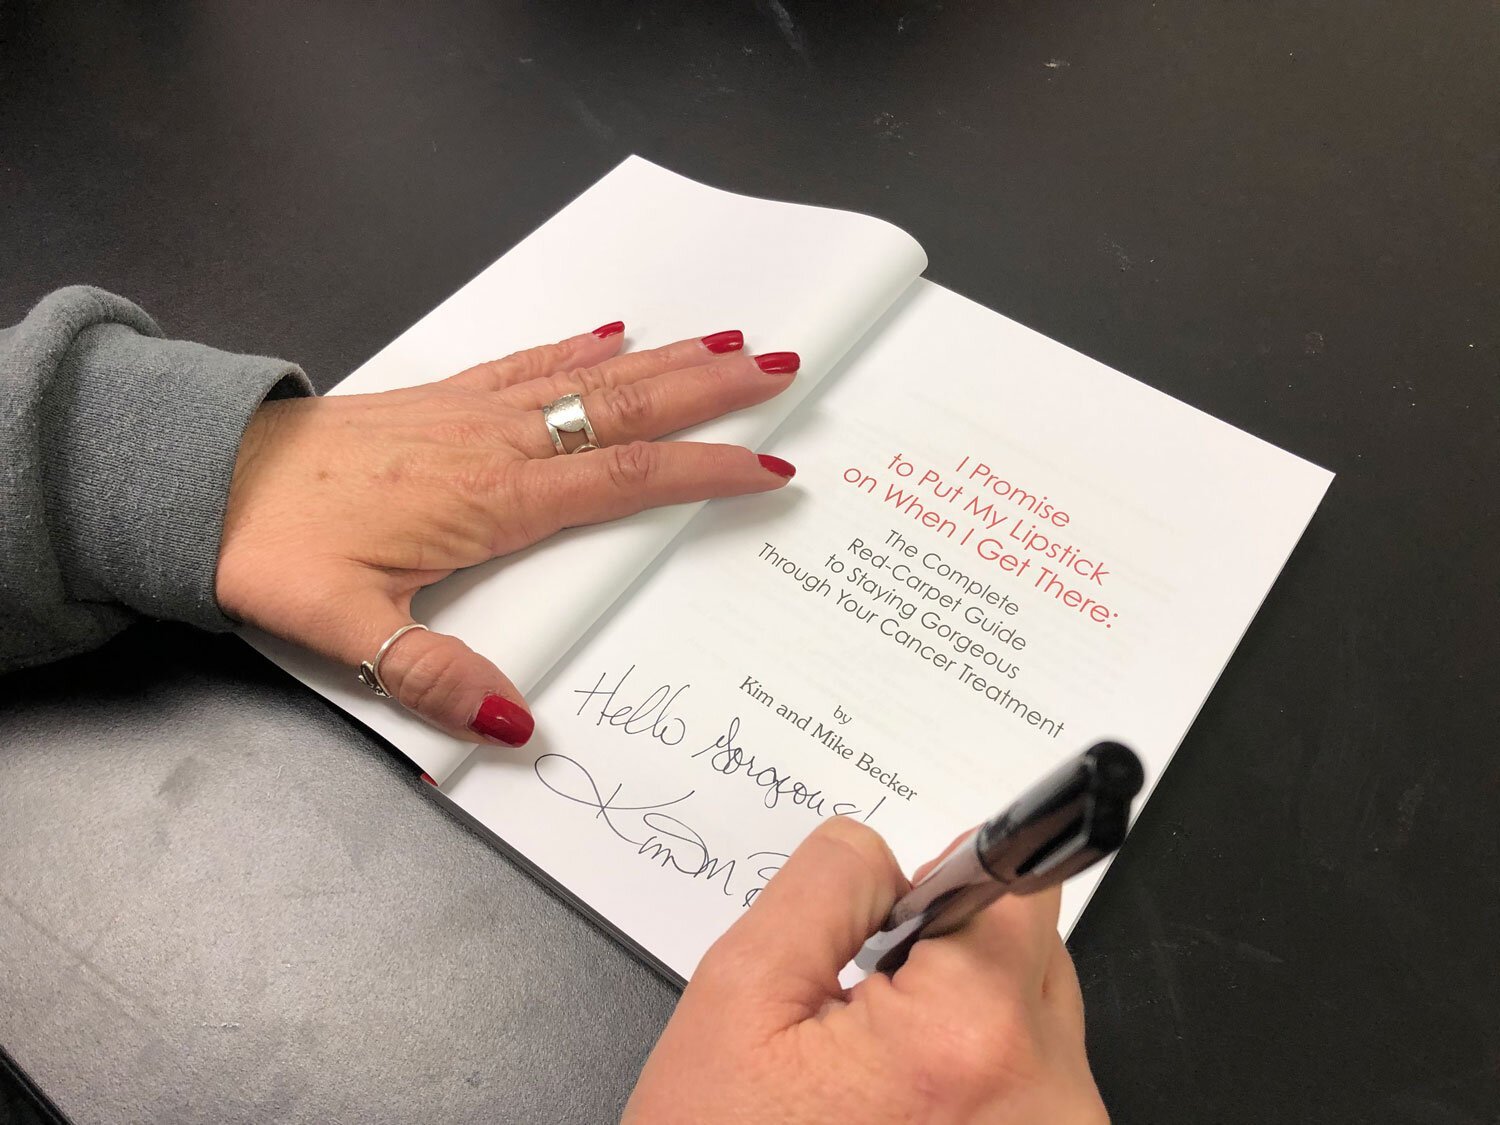 I Promise
to Put My Lipstick
on When I Get There:
The Complete
Red-Carpet Guide
to Staying Gorgeous
Through Your Cancer Treatment
by
Kim and Mike Becker
Hello Gorgeous!
Kim